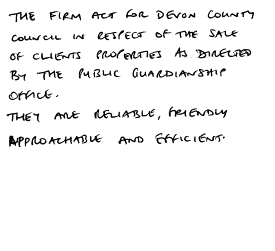 THE FIRM ACT FOR DEVON COUNTY
COUNCIL IN RESPECT OF THE SALE
OF CLIENTS PROPERTIES AS DIRECTED
BY THE PUBLIC GUARDIANSHIP
OFFICE.
THEY ARE RELIABLE, FRIENDLY
APPROACHABLE AND EFFICIENT.